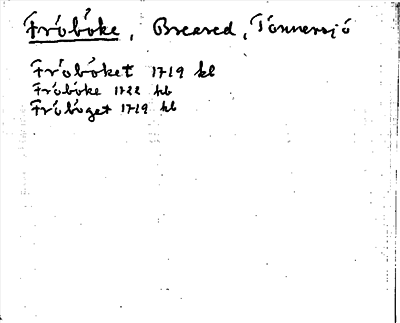 Fröböke, Breared, Tönnersjö
Fröböket 1719 kb
Fröböke 1722 kb
Fröböget 1729 kb